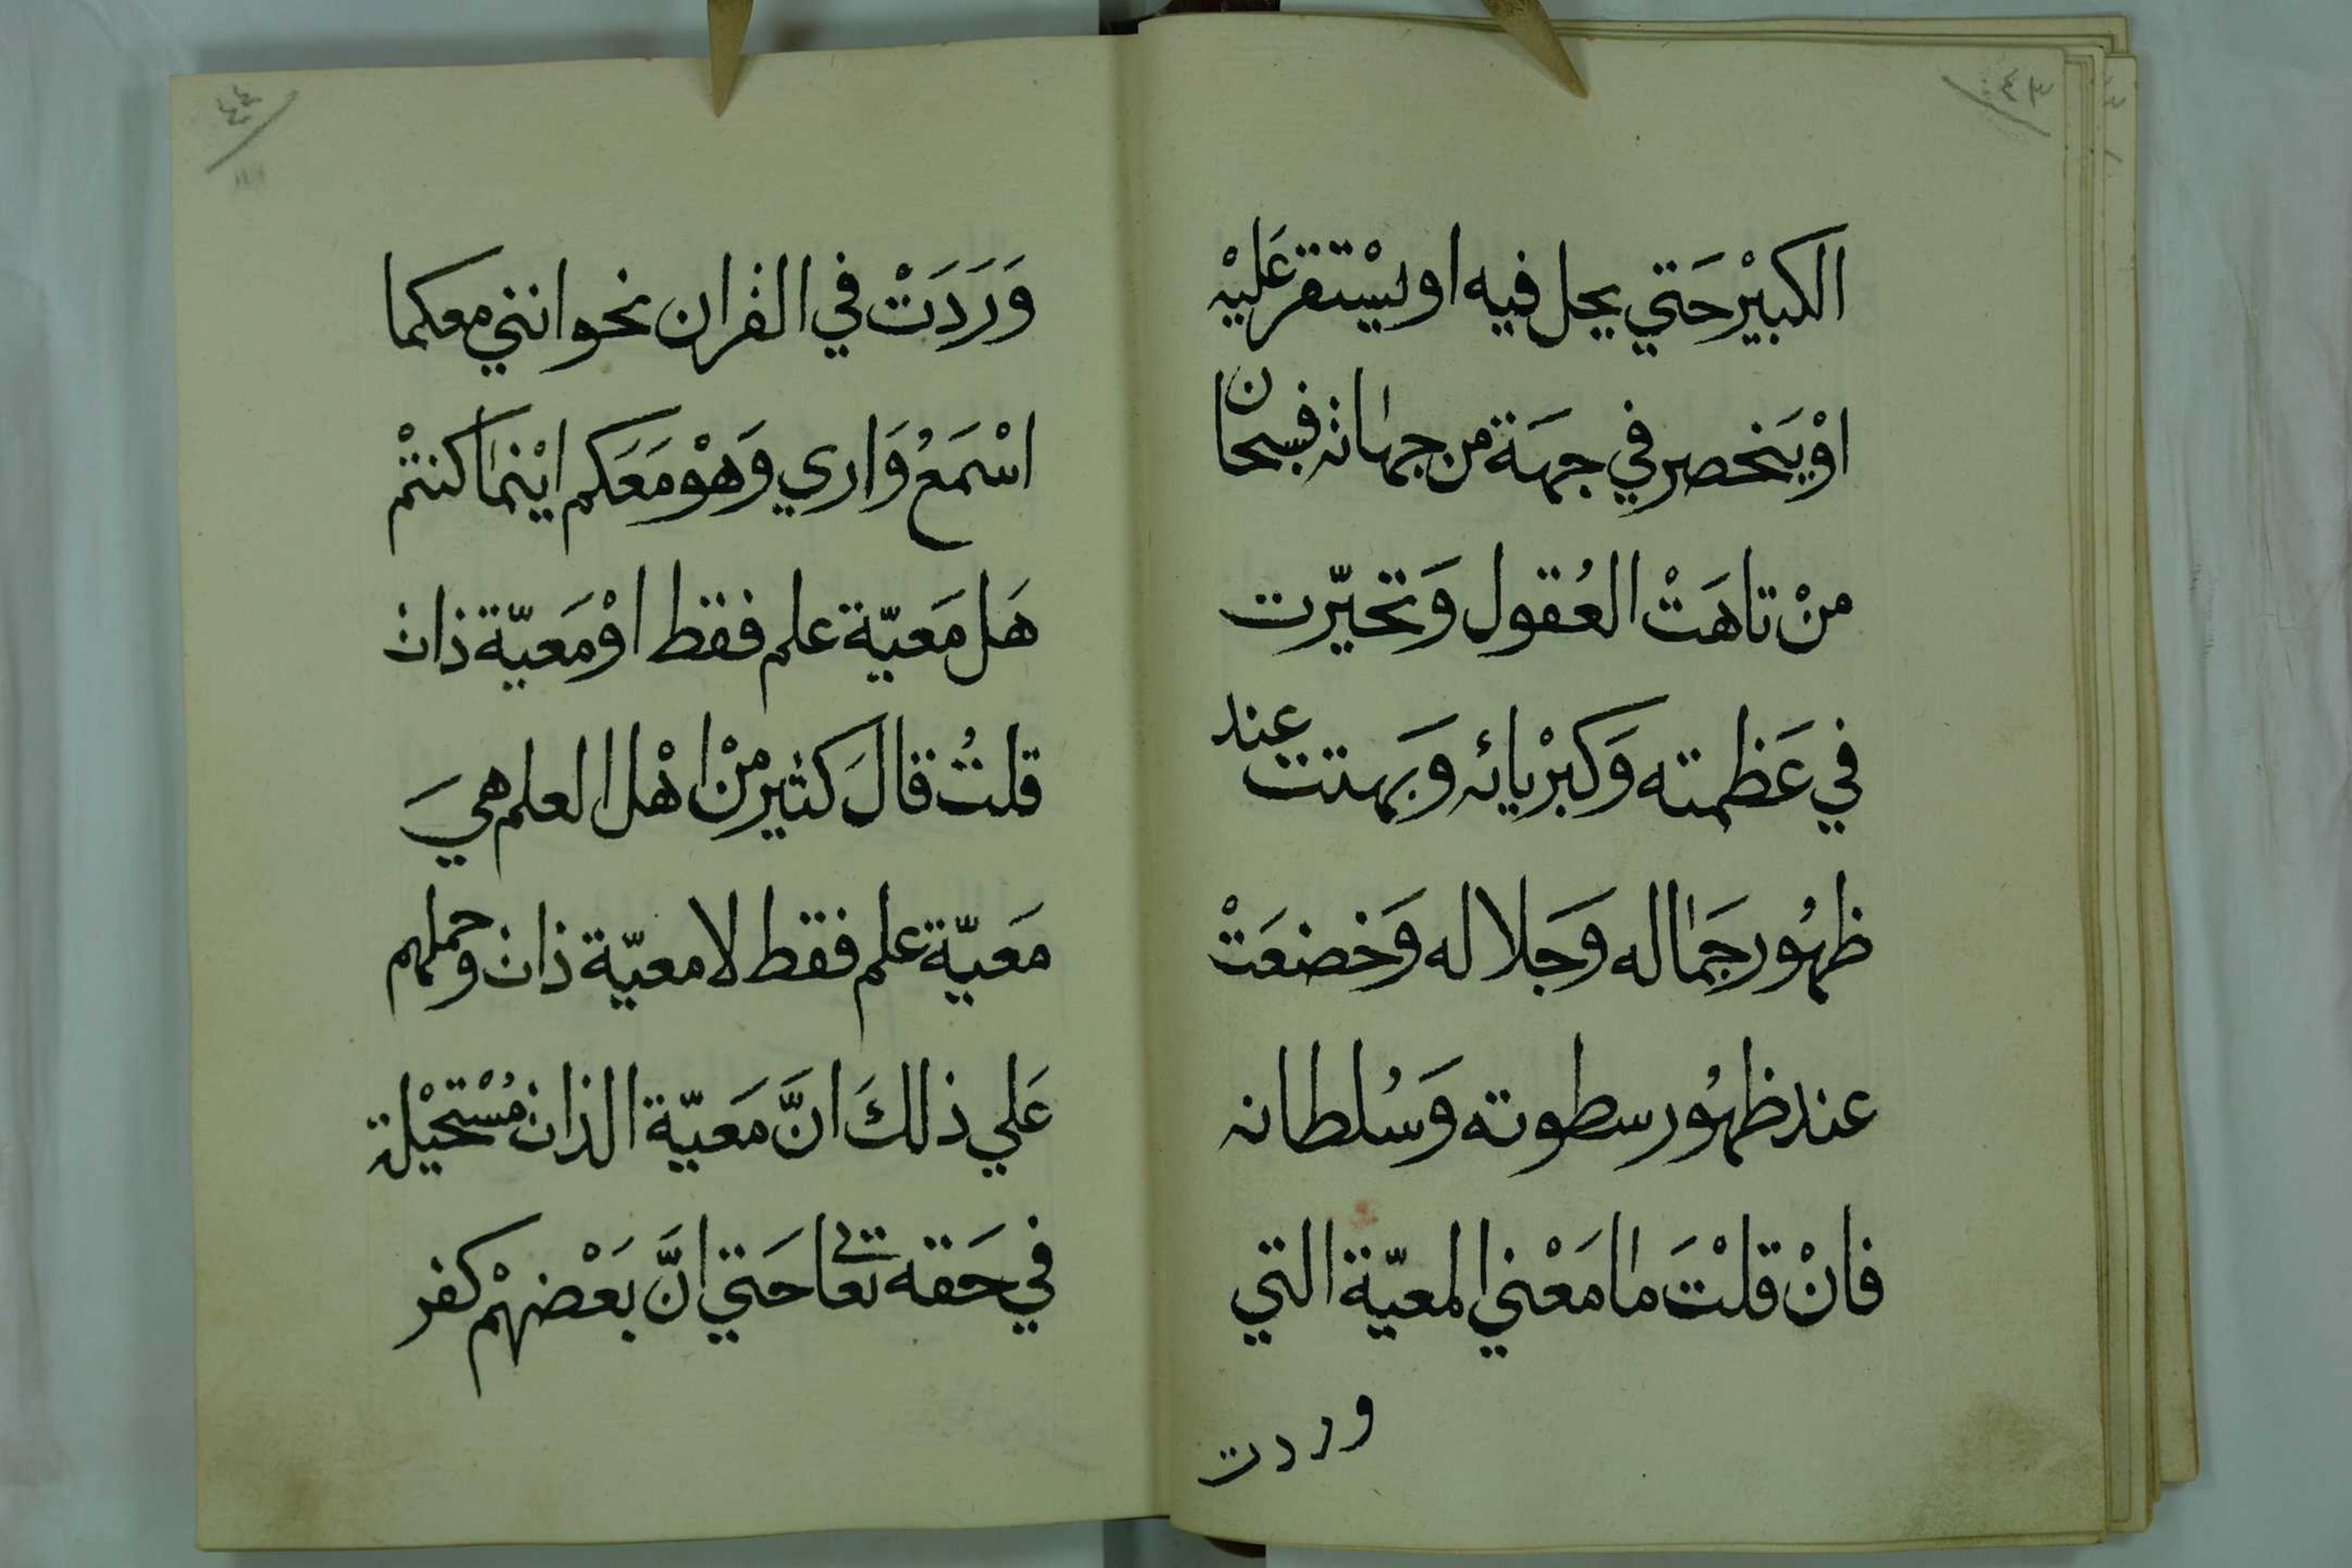 ٤٣
الكبيْر حَتي يحل فيه او يسْتقر عَليْه
اوْ يَنحصر في جهَة من جهاته فسبحان
منْ تاهَتْ العُقول وَتحيّرت
في عَظمته وَكبرْيائه وَبهتت عند
ظهُور جَماله وَجَلاله وَخضعَتْ
عند ظهُور سطوته وَسُلطانه
فانْ قلتَ ما مَعْني المعيّة التي
وردت
٤٤
وَرَدَتْ في القران نحو انني معكما
اسْمَعُ وَاري وَهْو مَعَكم ايْنما كنتمْ
هَل مَعيّة علم فقط اوْ مَعيّة ذات
قلتُ قالَ كثير منْ اهْل العلم هيَ
مَعيّة علم فقط لا معيّة ذات وحملهم
عَلي ذلكَ انَّ مَعيّة الذات مُسْتحيْلة
في حَقه تعالي حَتي انَّ بَعْضهمْ كفر